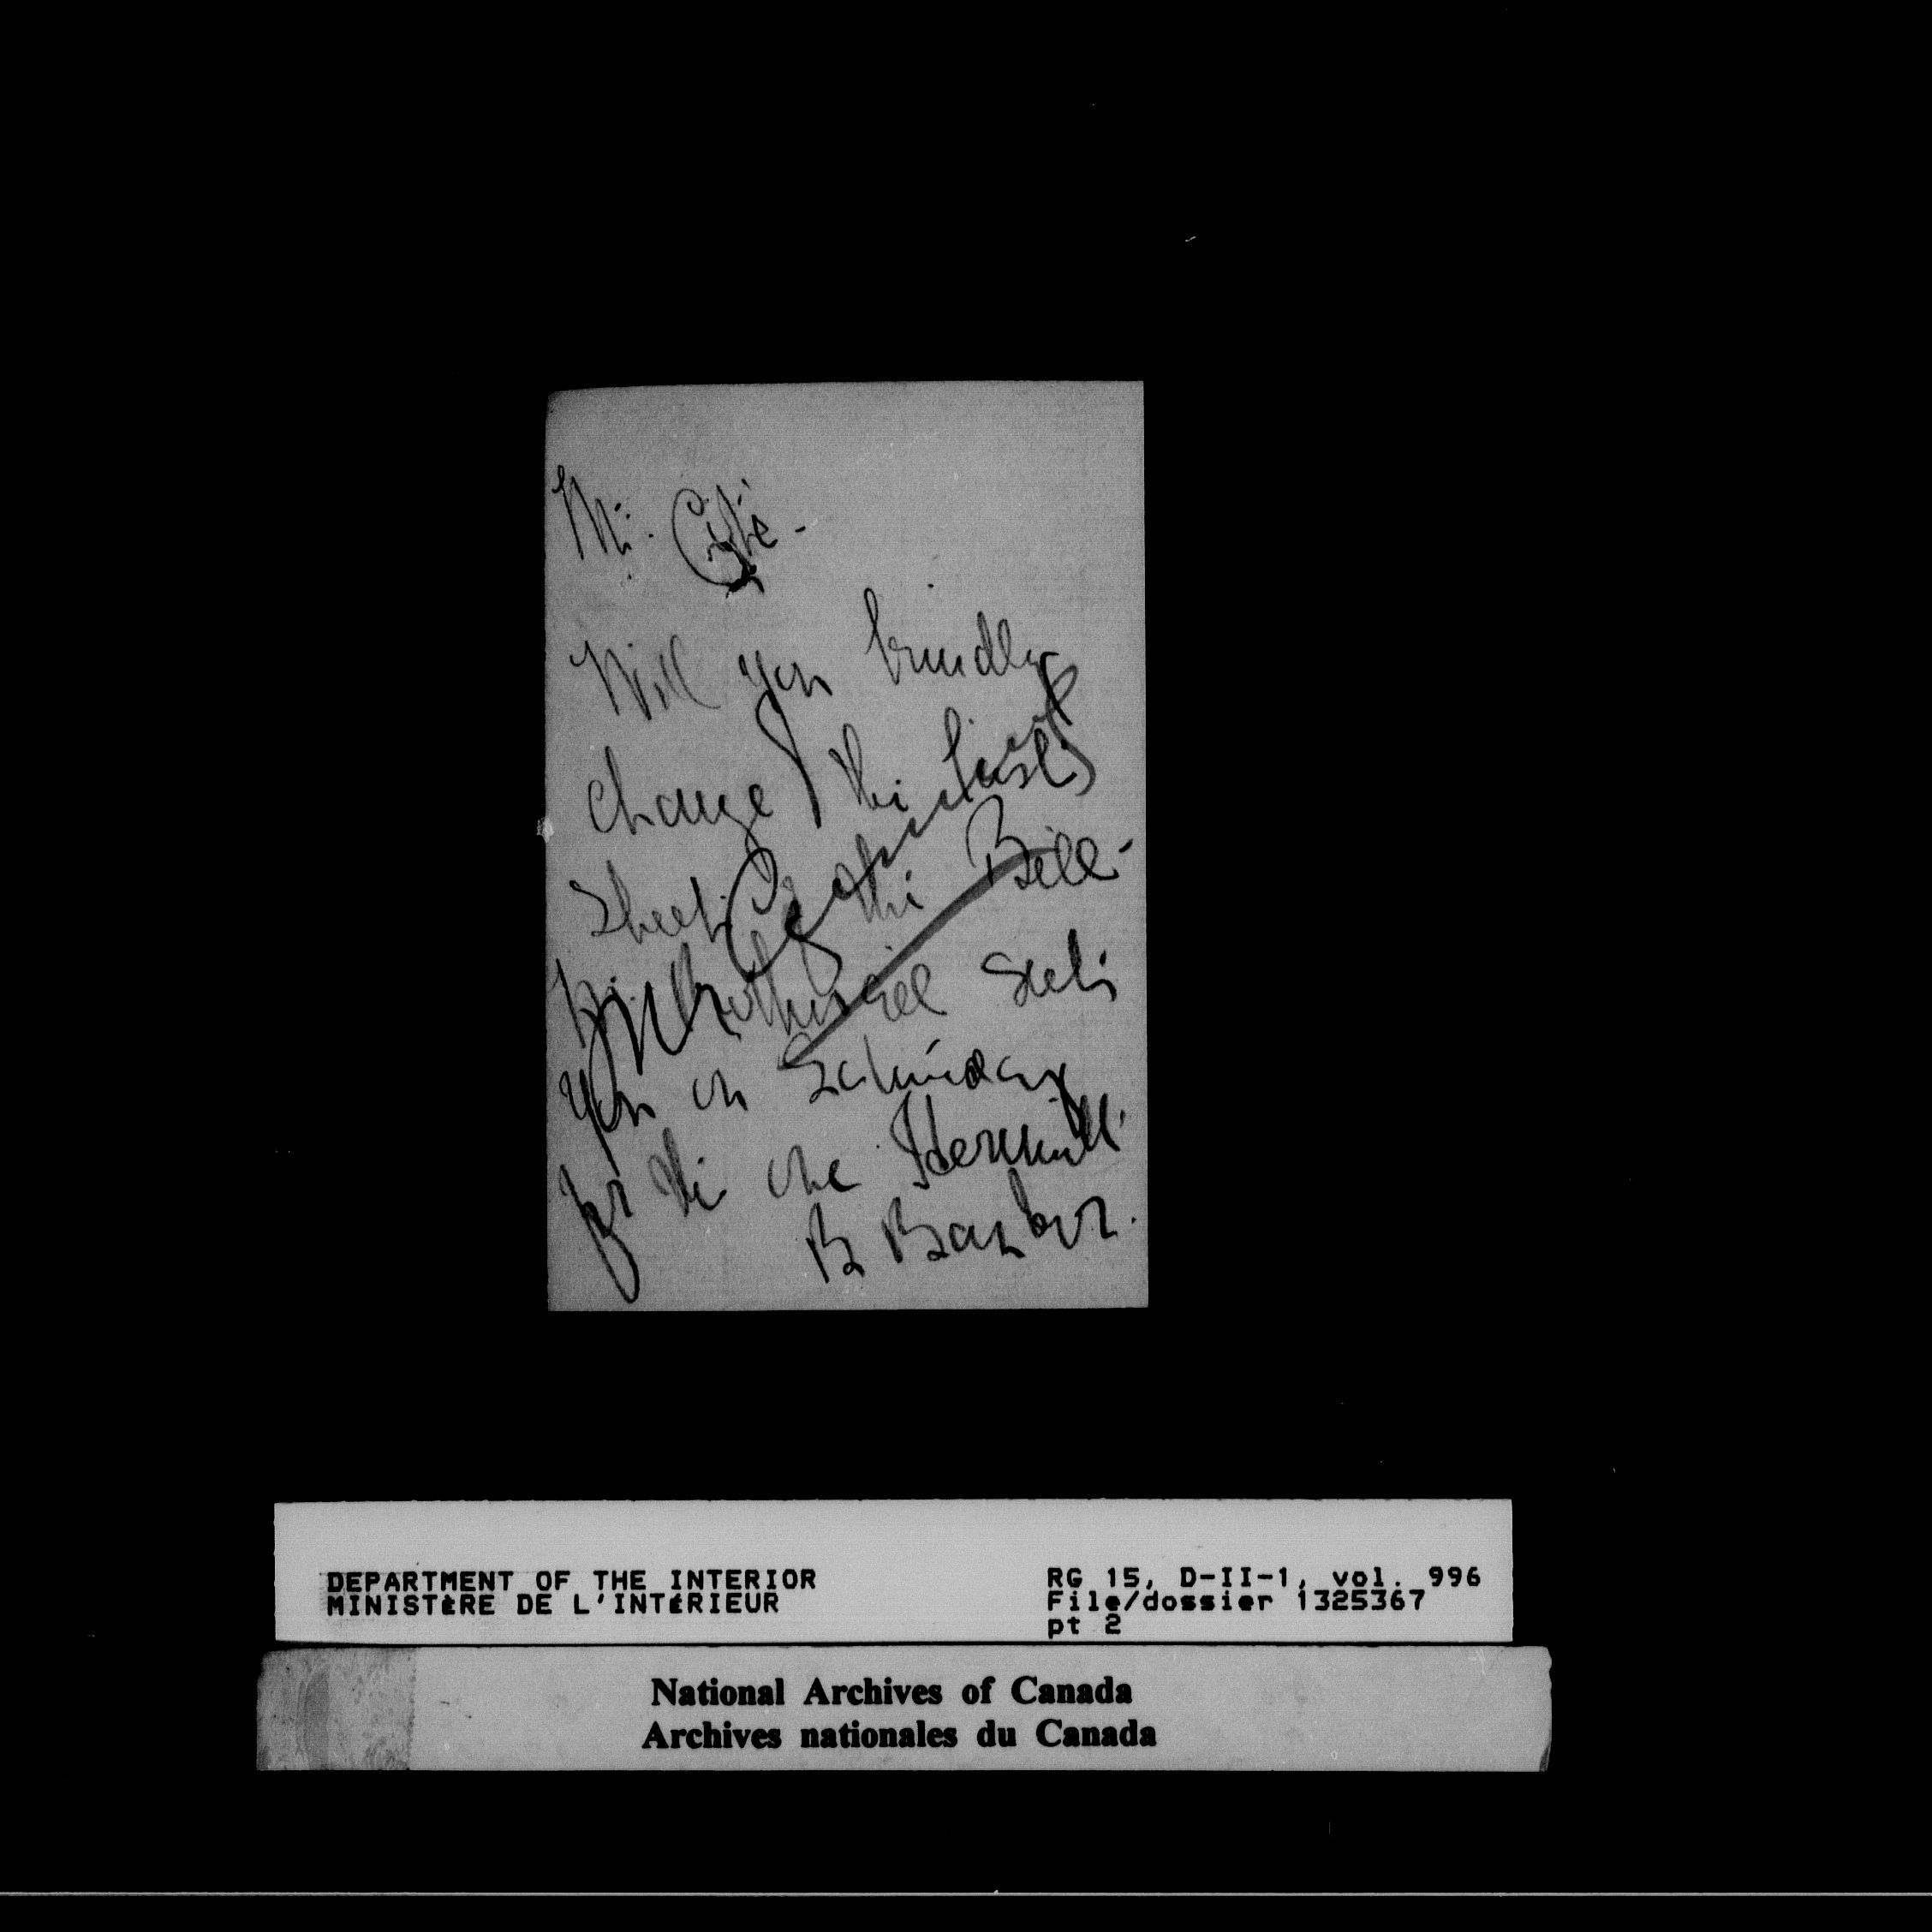 Mr. Côté -
Will you kindly
change the first
sheet of the Bill -
will see
you on Saturday
for the one
B Barber.
DEPARTMENT OF THE INTERIOR
MINISTÈRE DE L'INTÉRIEUR
RG 15, D-II-1, vol. 996
File/dossier 1325367
pt 2
National Archives of Canada
Archives nationales du Canada